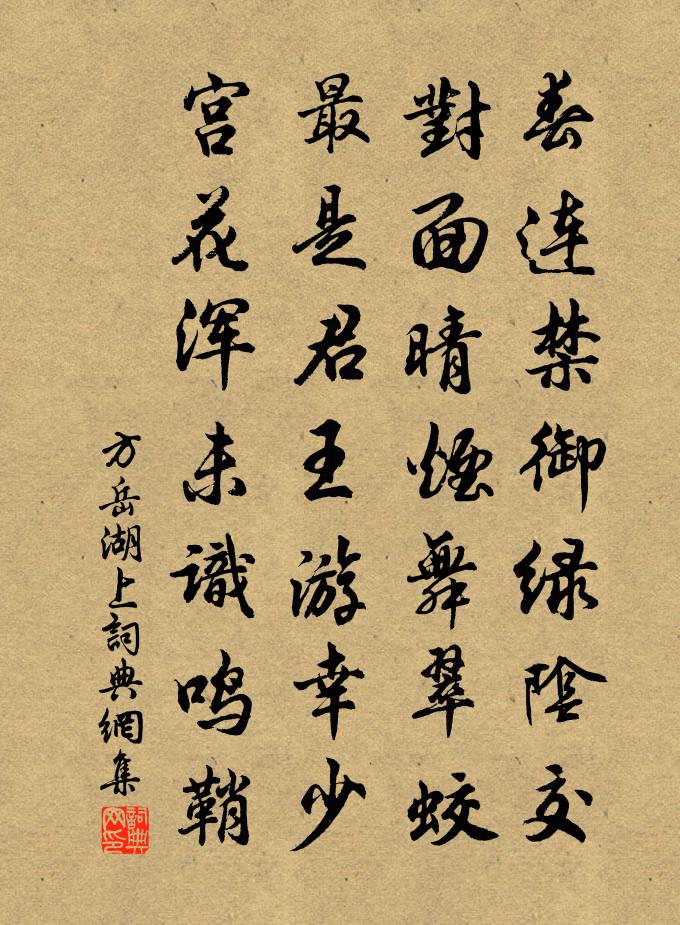 春连禁御绿陰交
對面晴煙舞翠蛟
最是君王游幸少
宫花浑未識鸣鞘
方岳湖上詞典網集
詞典网印